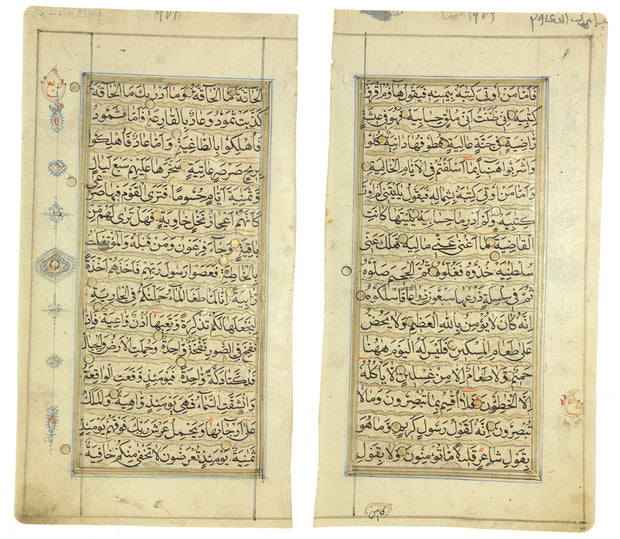 اَلْحَاقَّةُ مَا الْحَاقَّةُ وَمَا اَدْرٰيكَ مَا الْحَاقَّةُ
كَذَّبَتْ ثَمُودُ وَعَادٌ بِالْقَارِعَةِ فَاَمَّا ثَمُودُ
فَاُهْلِكُوا بِالطَّاغِيَةِ وَاَمَّا عَادٌ فَاُهْلِكُوا
بِرِيحٍ صَرْصَرٍ عَاتِيَةٍ سَخَّرَهَا عَلَيْهِمْ سَبْعَ لَيَالٍ
وَثَمٰنِيَةَ اَيَّامٍ حُسُومًا فَتَرَى الْقَوْمَ فِيهَا صَرْعٰى
كَاَنَّهُمْ اَعْجَازُ نَخْلٍ خَاوِيَةٍ فَهَلْ تَرٰى لَهُمْ مِنْ
بَاقِيَةٍ وَجَآءَ فِرْعَوْنُ وَمَنْ قَبْلَهُ وَالْمُؤْتَفِكٰتُ
بِالْخَاطِئَةِ فَعَصَوْا رَسُولَ رَبِّهِمْ فَاَخَذَهُمْ اَخْذَةً
رَابِيَةً اِنَّا لَمَّا طَغَا الْمَآءُ حَمَلْنٰكُمْ فِي الْجَارِيَةِ
لِنَجْعَلَهَا لَكُمْ تَذْكِرَةً وَتَعِيَهَا اُذُنٌ وَاعِيَةٌ فَاِذَا
نُفِخَ فِي الصُّورِ نَفْخَةٌ وَاحِدَةٌ وَحُمِلَتِ الْاَرْضُ وَالْجِبَالُ
فَدُكَّتَا دَكَّةً وَاحِدَةً فَيَوْمَئِذٍ وَقَعَتِ الْوَاقِعَةُ
وَانْشَقَّتِ السَّمَآءُ فَهِيَ يَوْمَئِذٍ وَاهِيَةٌ وَالْمَلَكُ
عَلٰى اَرْجَآئِهَا وَيَحْمِلُ عَرْشَ رَبِّكَ فَوْقَهُمْ يَوْمَئِذٍ
ثَمٰنِيَةٌ يَوْمَئِذٍ تُعْرَضُونَ لَا تَخْفٰى مِنْكُمْ خَافِيَةٌ
فَاَمَّا مَنْ اُوتِيَ كِتٰبَهُ بِيَمِينِهِ فَيَقُولُ هَآؤُمُ اقْرَؤُا
كِتٰبِيَهْ اِنِّي ظَنَنْتُ اَنِّي مُلٰقٍ حِسَابِيَهْ فَهُوَ فِي عِيشَةٍ
رَاضِيَةٍ فِي جَنَّةٍ عَالِيَةٍ قُطُوفُهَا دَانِيَةٌ كُلُوا
وَاشْرَبُوا هَنِيٓئًا بِمَا اَسْلَفْتُمْ فِي الْاَيَّامِ الْخَالِيَةِ
وَاَمَّا مَنْ اُوتِيَ كِتٰبَهُ بِشِمَالِهِ فَيَقُولُ يٰلَيْتَنِي لَمْ اُوتَ
كِتٰبِيَهْ وَلَمْ اَدْرِ مَا حِسَابِيَهْ يٰلَيْتَهَا كَانَتِ
الْقَاضِيَةَ مَآ اَغْنٰى عَنِّي مَالِيَهْ هَلَكَ عَنِّي
سُلْطٰنِيَهْ خُذُوهُ فَغُلُّوهُ ثُمَّ الْجَحِيمَ صَلُّوهُ
ثُمَّ فِي سِلْسِلَةٍ ذَرْعُهَا سَبْعُونَ ذِرَاعًا فَاسْلُكُوهُ
اِنَّهُ كَانَ لَا يُؤْمِنُ بِاللّٰهِ الْعَظِيمِ وَلَا يَحُضُّ
عَلٰى طَعَامِ الْمِسْكِينِ فَلَيْسَ لَهُ الْيَوْمَ هٰهُنَا
حَمِيمٌ وَلَا طَعَامٌ اِلَّا مِنْ غِسْلِينٍ لَا يَاْكُلُهُ
اِلَّا الْخَاطِئُونَ فَلَآ اُقْسِمُ بِمَا تُبْصِرُونَ وَمَا لَا
تُبْصِرُونَ اِنَّهُ لَقَوْلُ رَسُولٍ كَرِيمٍ وَمَا هُوَ
بِقَوْلِ شَاعِرٍ قَلِيلًا مَا تُؤْمِنُونَ وَلَا بِقَوْلِ
كَاهِنٍ